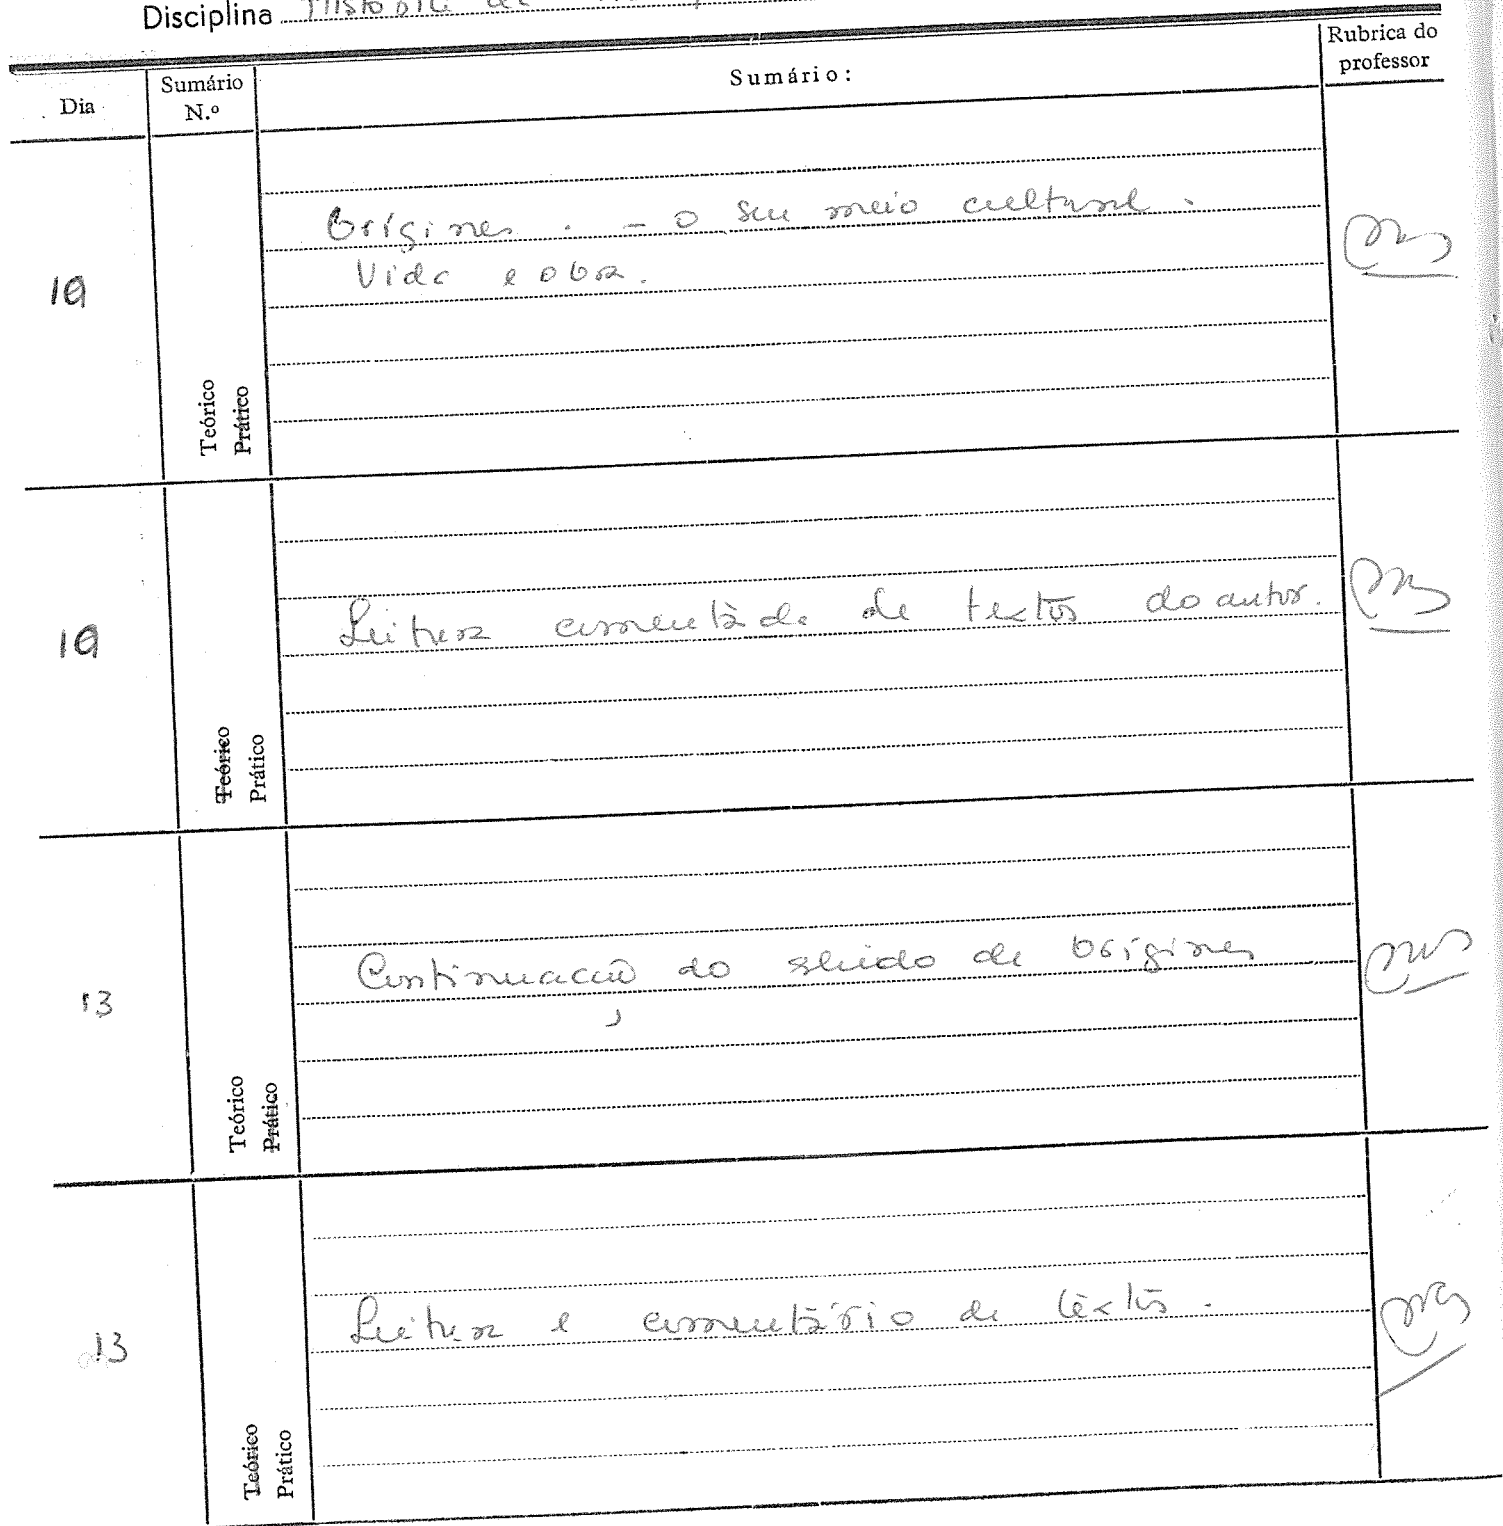 Disciplina
Dia
Sumário N.º
Sumário:
Rubrica do professor
Orígines. - O seu meio cultural.
Vida e obra.
Teórico
Prático
Leitura comentada de textos do autor.
Teórico
Prático
13
Continuação do estudo de Orígines
Teórico
Prático
13
Leitura e comentário de textos.
Teórico
Prático